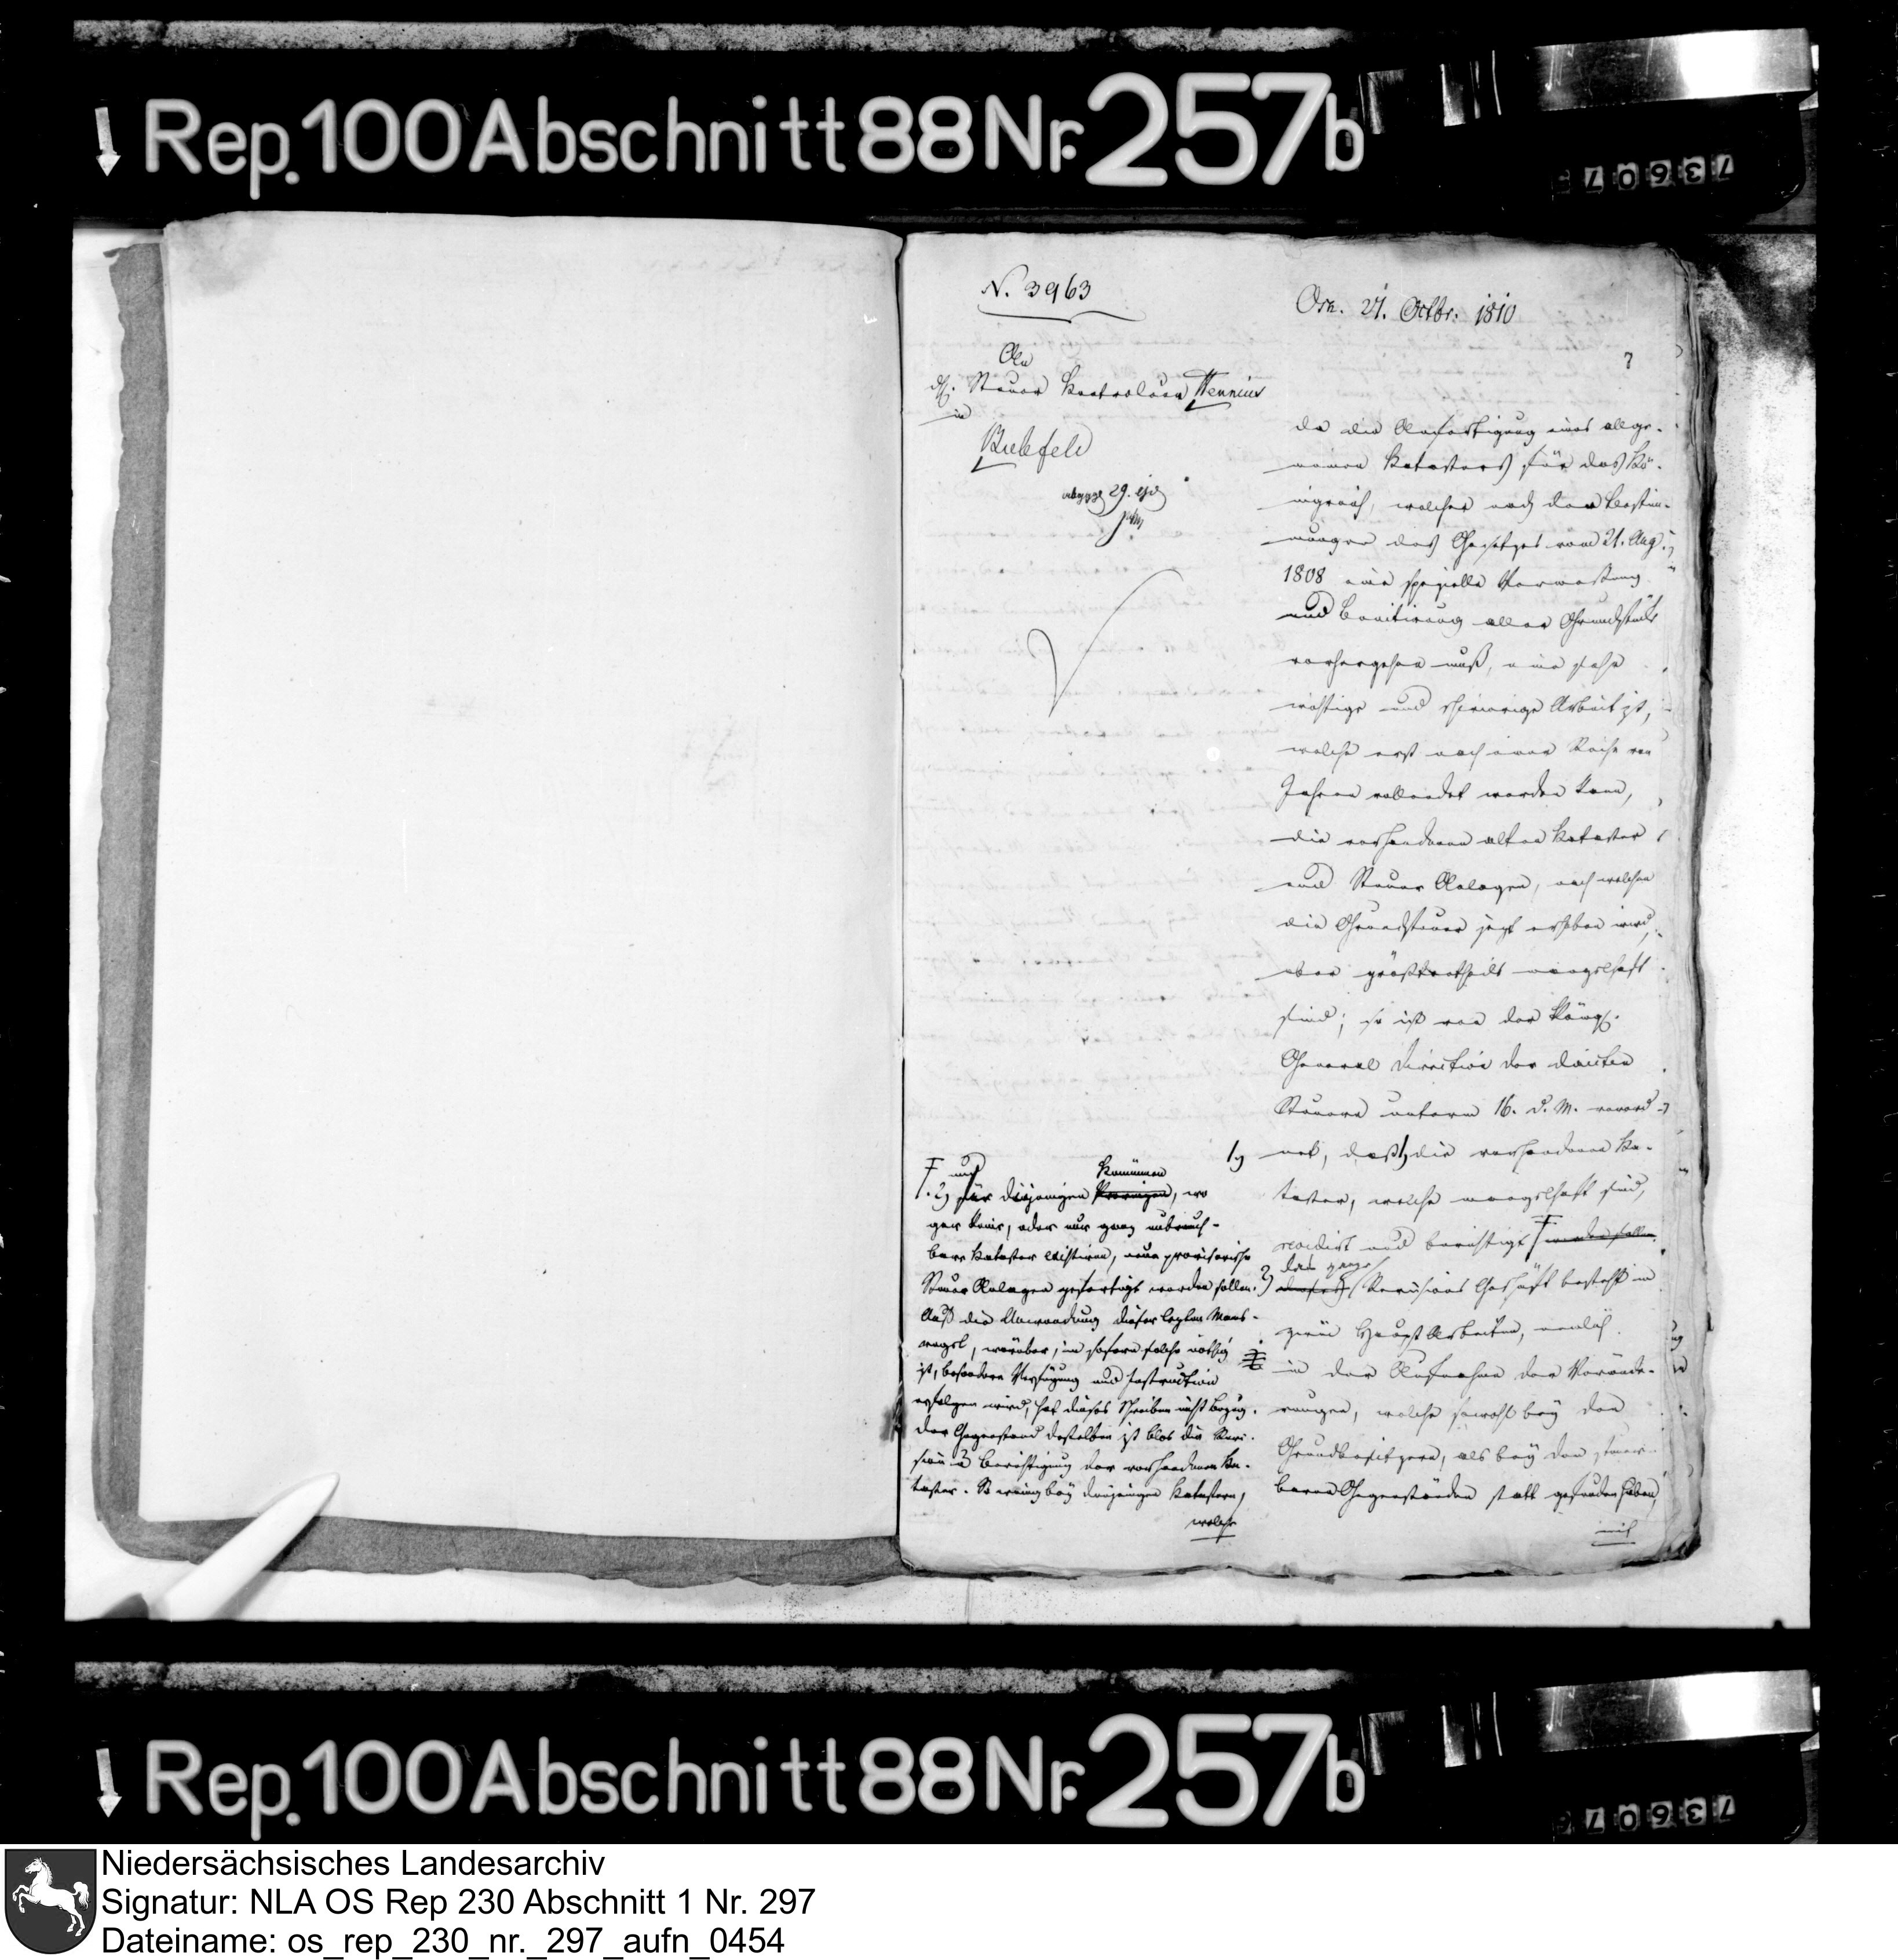 Rep. 100 Abschnitt 88 Nr. 257b
73607
N. 3963
Osn. 21. Octbr. 1810
An
d. H. Steuer Kontroleur Hennius
in
Bielefeld
abgeg 29. ejd
Da die Anfertigung eines allge-
meinen Katasters für das Kö-
nigreich, welcher nach den Bestim-
mungen des Gesetzes vom 21. Aug.
1808 eine spezielle Vermessung
und Bonitirung aller Grundstücke
vorhergehen muß, eine sehr
wichtige und schwierige Arbeit ist,
welche erst nach einer Reihe von
Jahren vollendet werden kann,
die vorhandenen alten Kataster
und Steuer Anlagen, nach welchen
die Grundsteuer jetzt erhoben wird,
aber größtentheils mangelhaft
sind; so ist von der Königl.
General Direction der directen
Steuern unterm 16. d. M. verord-
net, daß 1) die vorhandenen Ka-
taster, welche mangelhaft sind,
revidirt und berichtigt werden sollen.
das ganze
dieses Revisions Geschäft besteht in
zwei Haupt Arbeiten, nemlich
in der Aufnahme der Verände-
rungen, welche sowohl bey den
Grundbesitzern, als bey den steuer-
baren Gegenständen statt gefunden haben,
und
2) für diejenigen Provinzen, wo
Kommünen
gar keine, oder nur ganz unbrauch-
bare Kataster existiren, neue provisorische
Steuer Anlagen gefertigt werden sollen.
Auf die Anwendung dieser letzten Maas-
regel, worüber, in sofern solche nöthig
ist, besondere Verfügung und Instruction
erfolgen wird, hat dieses Schreiben nicht Bezug.
Der Gegenstand desselben ist blos die Revi-
sion u Berichtigung der vorhandenen Ka-
taster. So wenig bey denjenigen Katastern,
welche
Rep. 100 Abschnitt 88 Nr. 257b
73607
Niedersächsisches Landesarchiv
Signatur: NLA OS Rep 230 Abschnitt 1 Nr. 297
Dateiname: os_rep_230_nr._297_aufn_0454